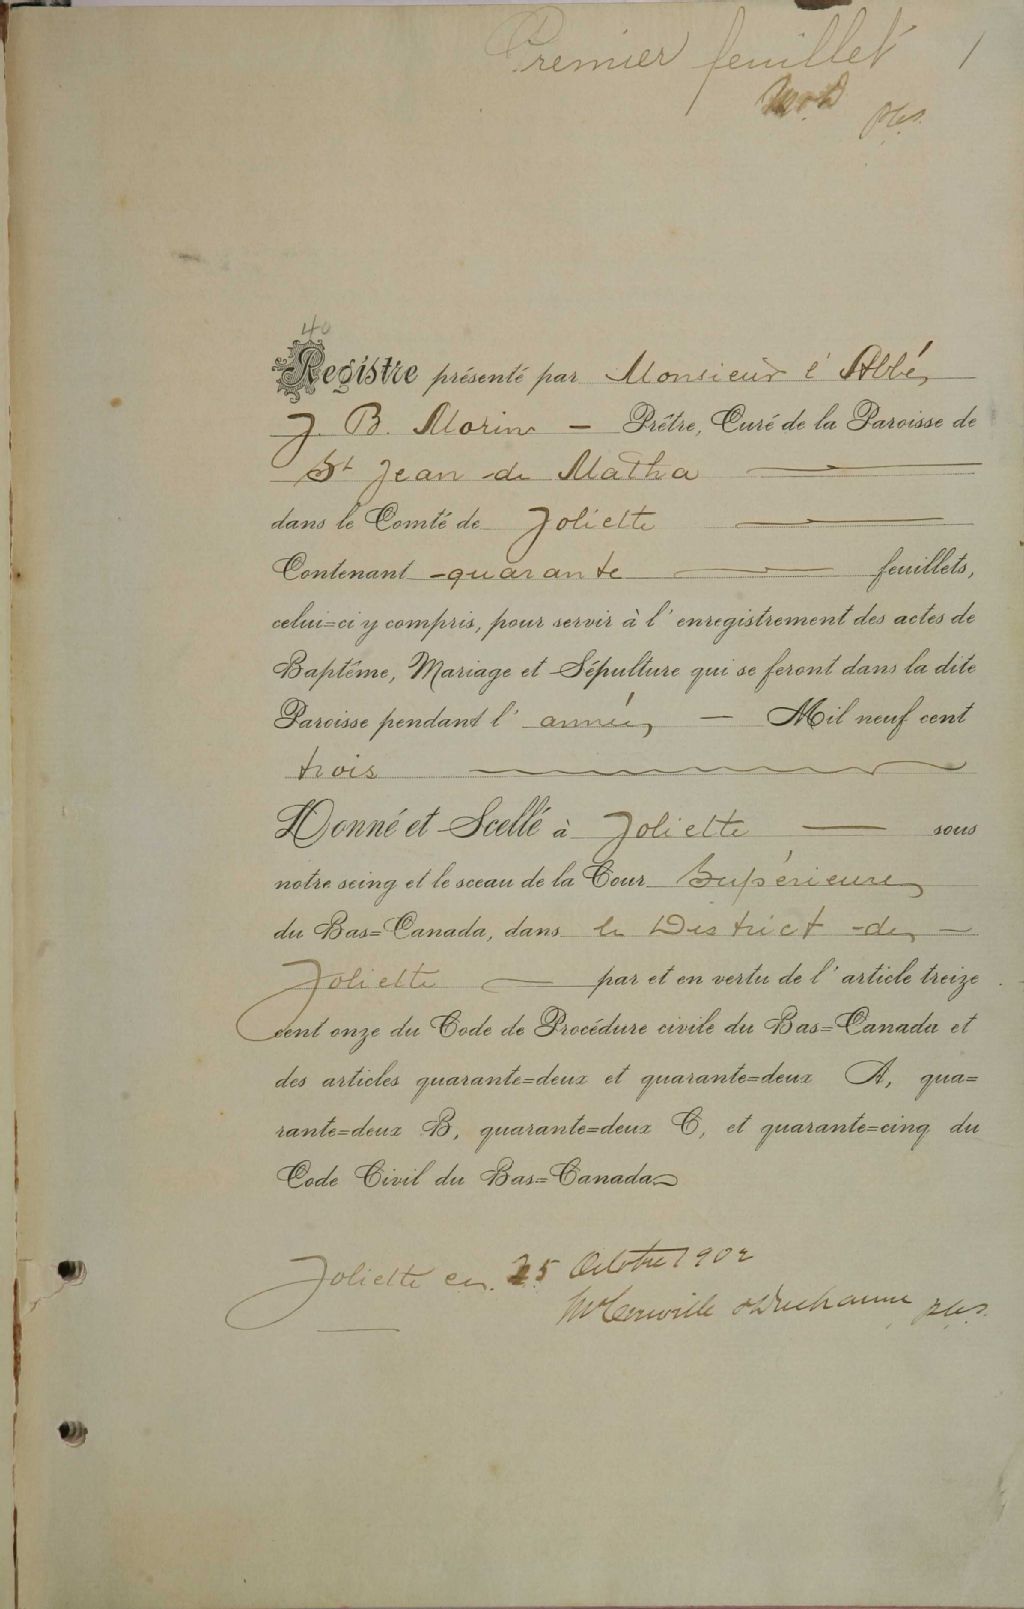 Premier feuillet 1
40
Registre présenté par Monsieur l'Abbé
J. B. Morin — Prêtre, Curé de la Paroisse de
St Jean de Matha
dans le Comté de Joliette
Contenant quarante feuillets,
celui=ci y compris, pour servir à l'enregistrement des actes de
Baptême, Mariage et Sépulture qui se feront dans la dite
Paroisse pendant l'année — Mil neuf cent
trois
Donné et Scellé à Joliette — sous
notre seing et le sceau de la Cour Supérieure
du Bas=Canada, dans le District de —
Joliette — par et en vertu de l'article treize
cent onze du Code de Procédure civile du Bas=Canada et
des articles quarante=deux et quarante=deux A, qua=
rante=deux B, quarante=deux C, et quarante=cinq du
Code Civil du Bas=Canada
Joliette ce 25 Octobre 1902